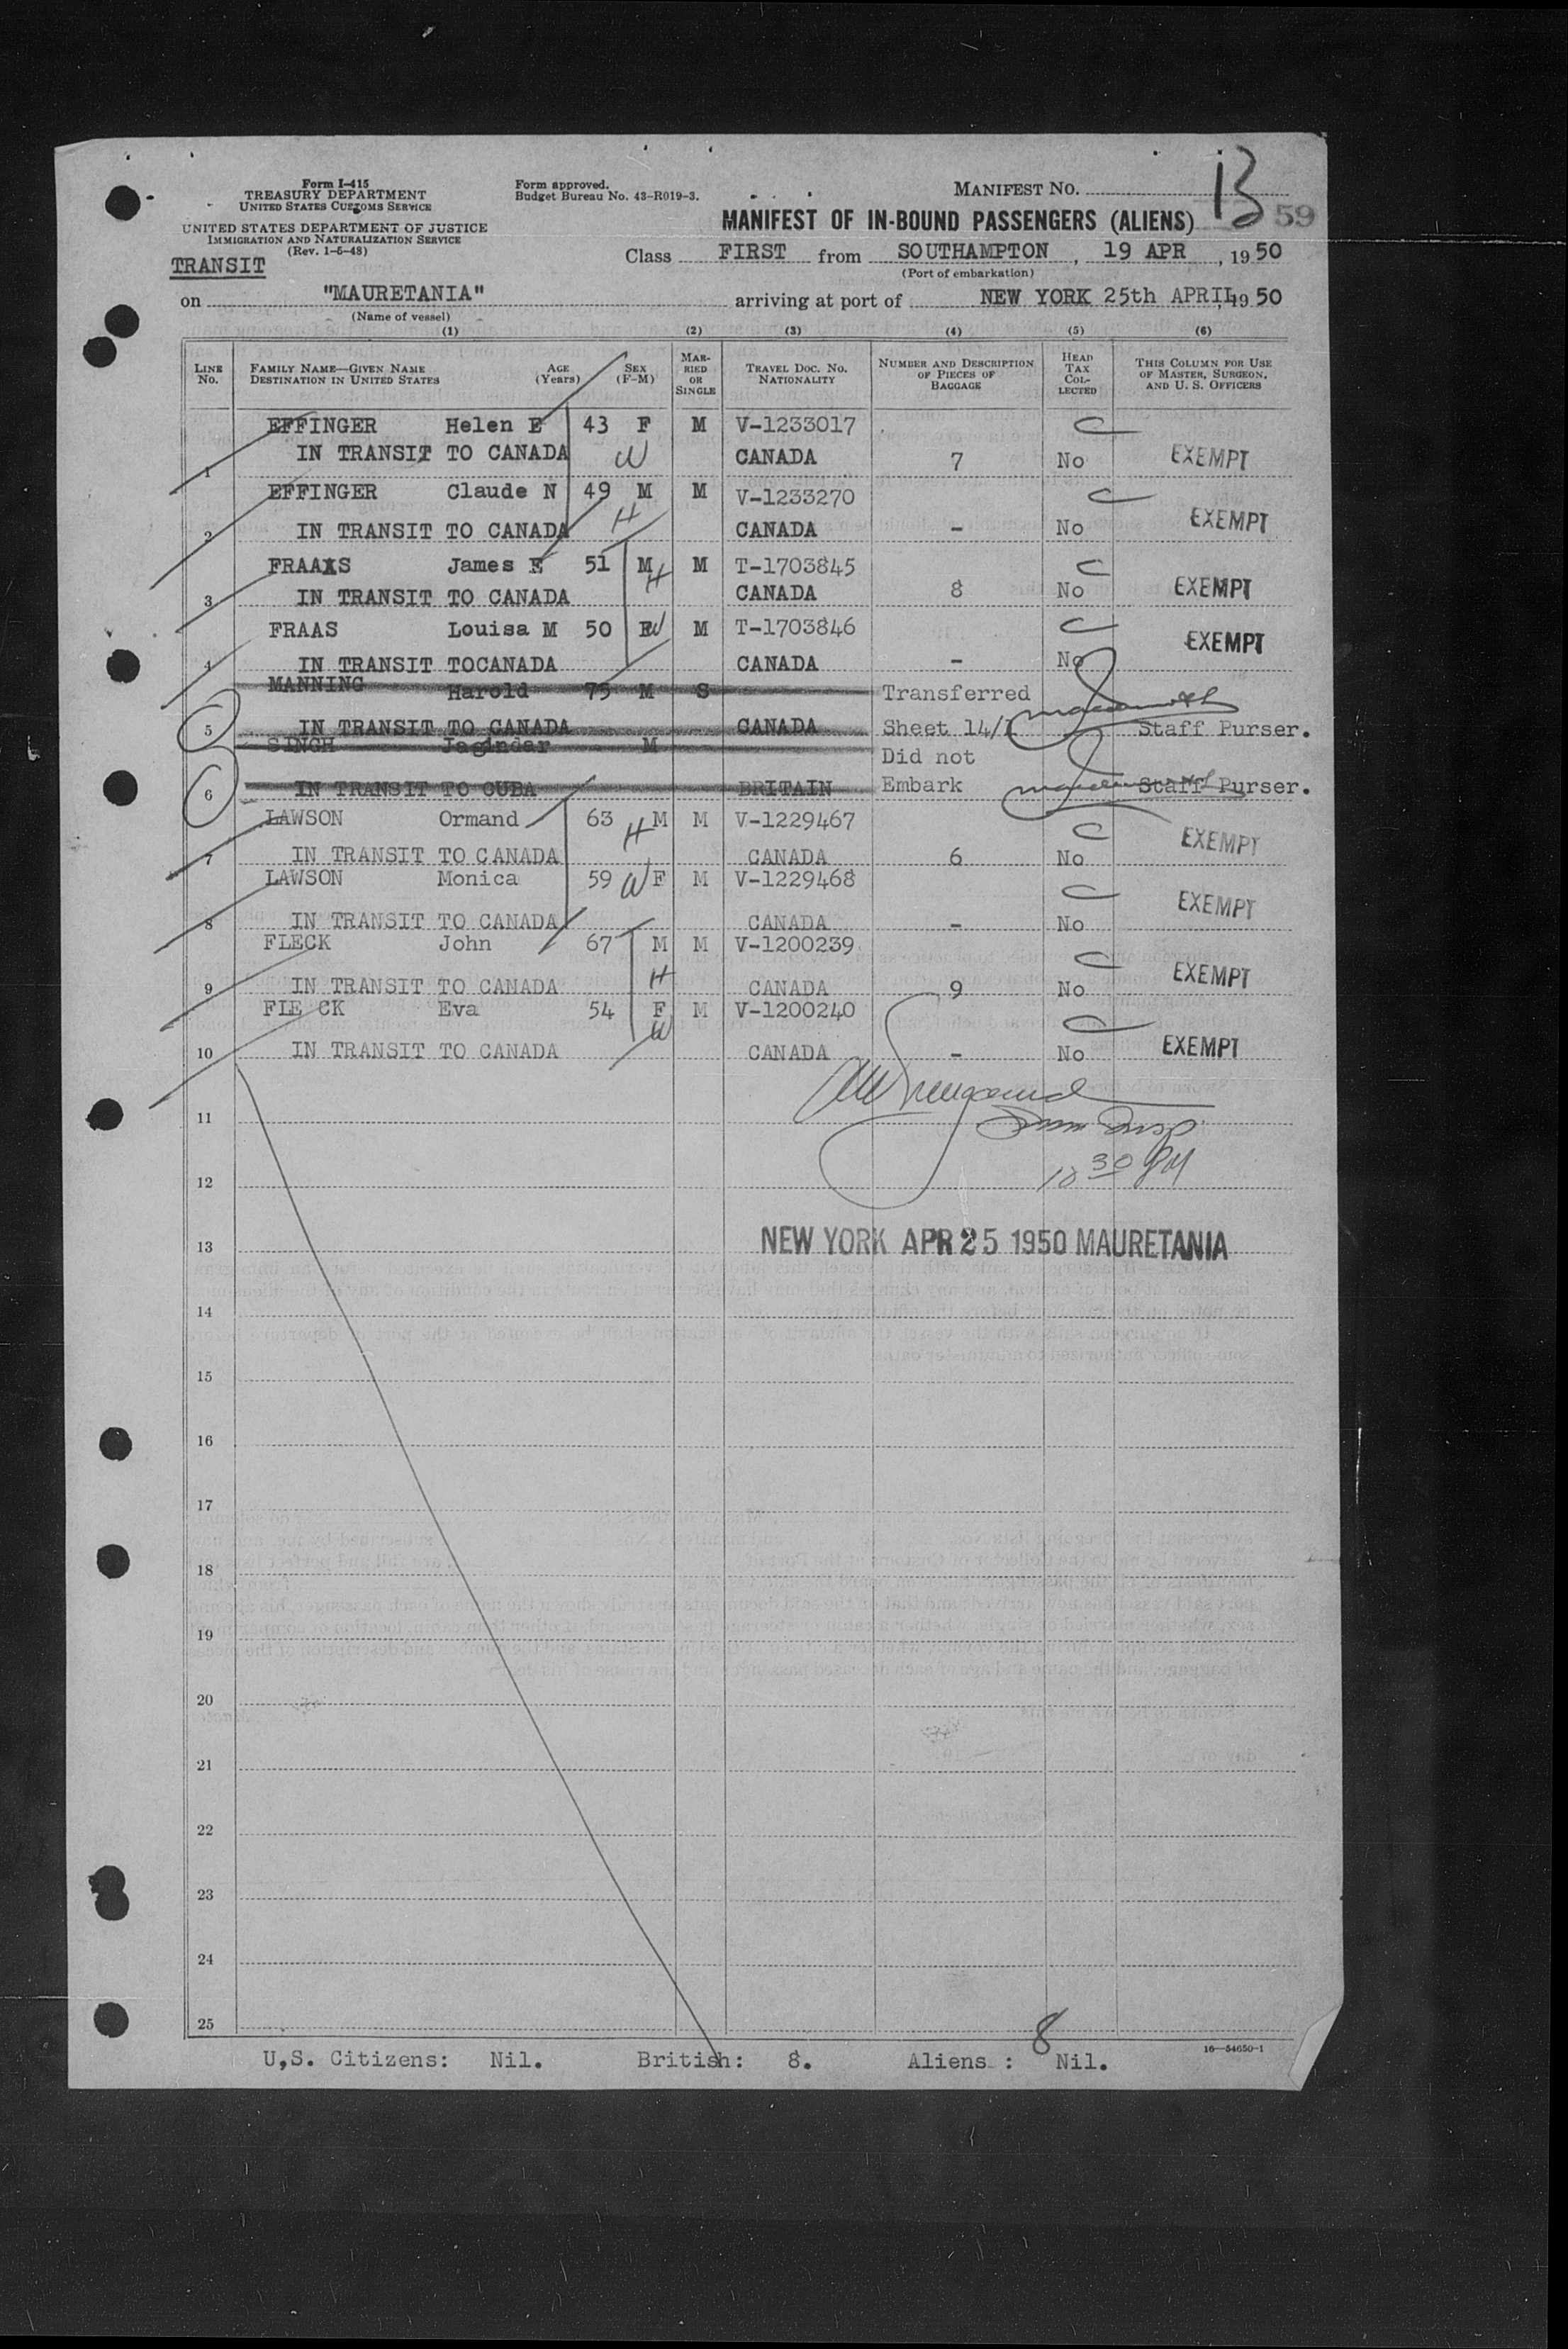 Form I-415
TREASURY DEPARTMENT
UNITED STATES CUSTOMS SERVICE
UNITED STATES DEPARTMENT OF JUSTICE
IMMIGRATION AND NATURALIZATION SERVICE
(Rev. 1-5-48)
TRANSIT
Form approved.
Budget Bureau No. 43-R019-3.
MANIFEST NO. 13
59
MANIFEST OF IN-BOUND PASSENGERS (ALIENS)
Class FIRST from SOUTHAMPTON, 19 APR, 1950
(Port of embarkation)
on "MAURETANIA" arriving at port of NEW YORK 25th APRIL, 1950
(Name of vessel)
(1) (2) (3) (4) (5) (6)
LINE No. FAMILY NAME—GIVEN NAME DESTINATION IN UNITED STATES AGE (Years) SEX (F-M) MARRIED OR SINGLE TRAVEL DOC. NO. NATIONALITY NUMBER AND DESCRIPTION OF PIECES OF BAGGAGE HEAD TAX COLLECTED THIS COLUMN FOR USE OF MASTER, SURGEON, AND U. S. OFFICERS
EFFINGER Helen E 43 F M V-1233017 C
1 IN TRANSIT TO CANADA W CANADA 7 No EXEMPT
EFFINGER Claude N 49 M M V-1233270 C
2 IN TRANSIT TO CANADA H CANADA - No EXEMPT
FRAAXS James E 51 M H M T-1703845 C
3 IN TRANSIT TO CANADA CANADA 8 No EXEMPT
FRAAS Louisa M 50 F W M T-1703846 C
4 IN TRANSIT TOCANADA CANADA - No EXEMPT
MANNING Harold 75 M S Transferred
5 IN TRANSIT TO CANADA CANADA Sheet 14/1 Staff Purser.
SINGH Jagindar M Did not
6 IN TRANSIT TO CUBA BRITAIN Embark Staff Purser.
LAWSON Ormand 63 H M M V-1229467 C
7 IN TRANSIT TO CANADA CANADA 6 No EXEMPT
LAWSON Monica 59 W F M V-1229468 C
8 IN TRANSIT TO CANADA CANADA - No EXEMPT
FLECK John 67 M M V-1200239 C
9 IN TRANSIT TO CANADA H CANADA 9 No EXEMPT
FLE CK Eva 54 F W M V-1200240 C
10 IN TRANSIT TO CANADA CANADA - No EXEMPT
11
12
13 NEW YORK APR 25 1950 MAURETANIA
14
15
16
17
18
19
20
21
22
23
24
25
U,S. Citizens: Nil. British: 8. Aliens : 8 Nil.
16—54650-1